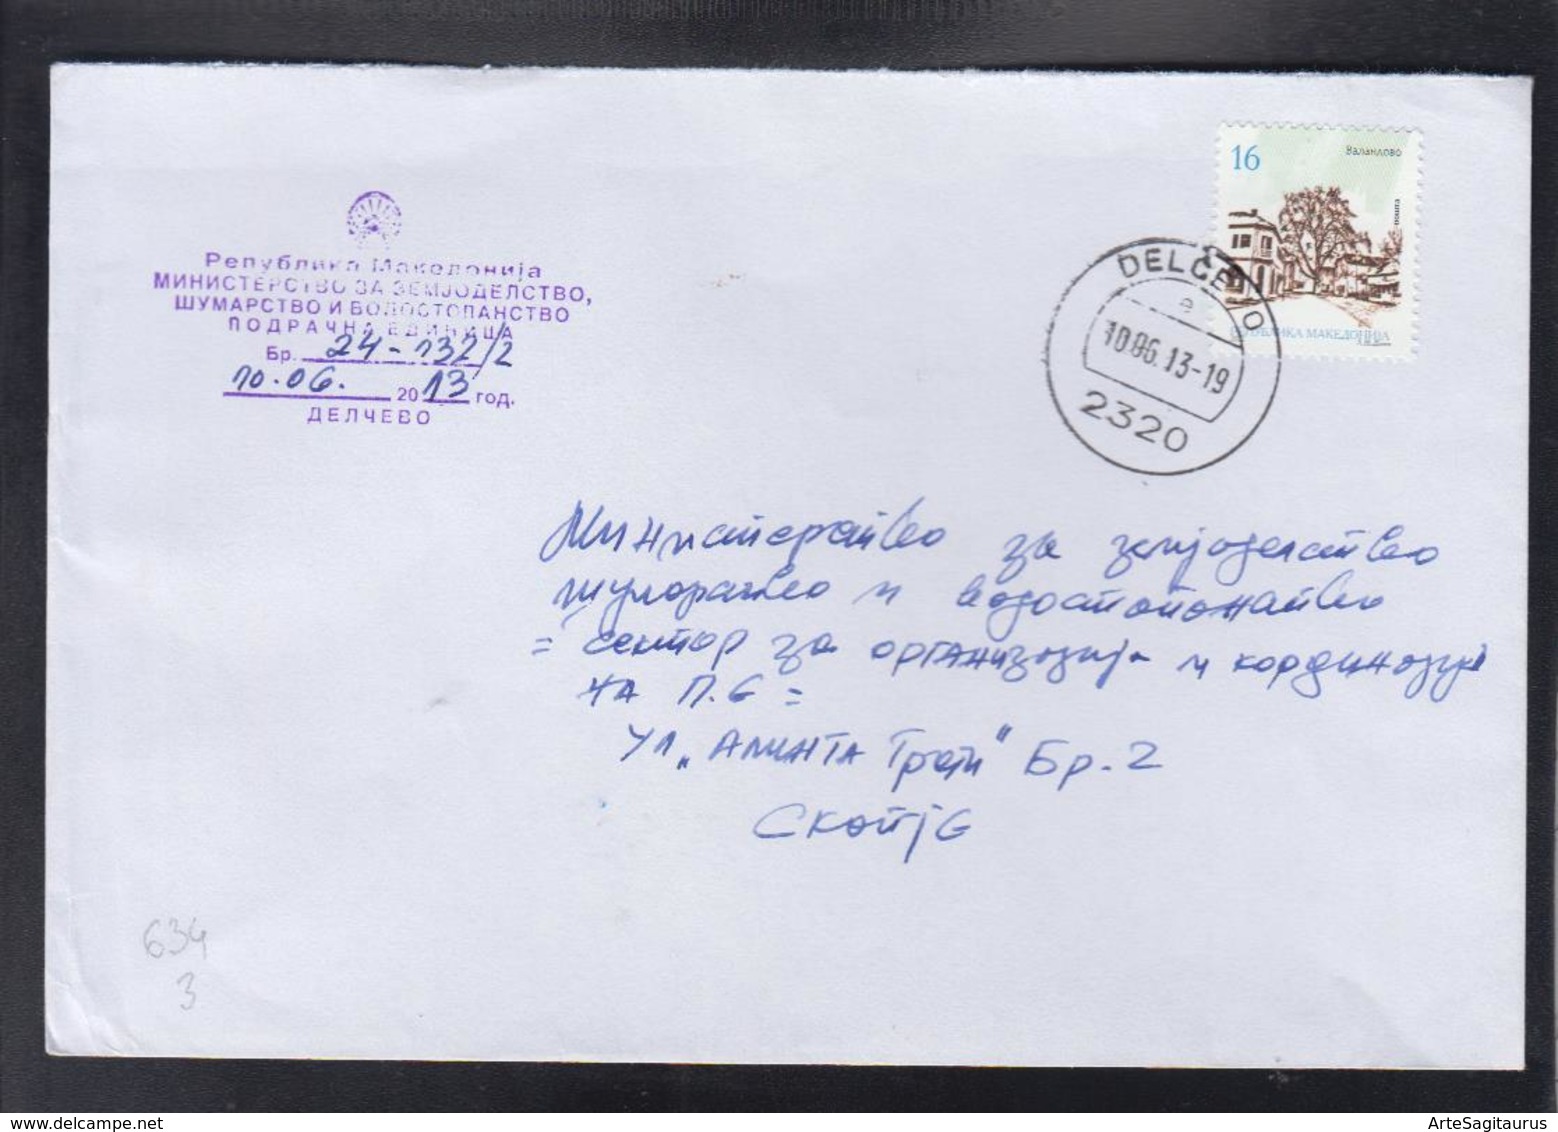 Република Македонија
МИНИСТЕРСТВО ЗА ЗЕМЈОДЕЛСТВО,
ШУМАРСТВО И ВОДОСТОПАНСТВО
ПОДРАЧНА ЕДИНИЦА
Бр. 24-132/2
10.06. 2013 год.
ДЕЛЧЕВО
16
Валандово
пошта
РЕПУБЛИКА МАКЕДОНИЈА
DELCEVO
e
10.06.13-19
2320
Министерство за земјоделство
шумарство и водостопанство
= сектор за организација и кординација
на П.Е =
ул „АМИНТА Трети" Бр. 2
Скопје
634
3
ArteSagitaurus